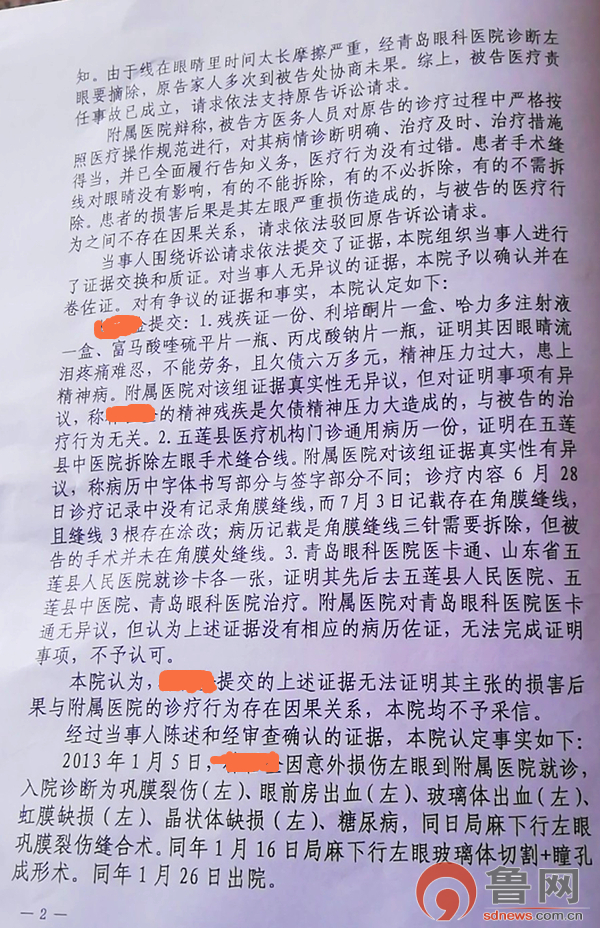 知。由于线在眼睛里时间太长摩擦严重，经青岛眼科医院诊断左
眼要摘除，原告家人多次到被告处协商未果。综上，被告医疗责
任事故已成立，请求依法支持原告诉讼请求。
附属医院辩称，被告方医务人员对原告的诊疗过程中严格按
照医疗操作规范进行，对其病情诊断明确、治疗及时、治疗措施
得当，并已全面履行告知义务，医疗行为没有过错。患者手术缝
线对眼睛没有影响，有的不能拆除，有的不必拆除，有的不需拆
除。患者的损害后果是其左眼严重损伤造成的，与被告的医疗行
为之间不存在因果关系，请求依法驳回原告诉讼请求。
当事人围绕诉讼请求依法提交了证据，本院组织当事人进行
了证据交换和质证。对当事人无异议的证据，本院予以确认并在
卷佐证。对有争议的证据和事实，本院认定如下：
提交：1.残疾证一份、利培酮片一盒、哈力多注射液
一盒、富马酸喹硫平片一瓶、丙戊酸钠片一瓶，证明其因眼睛流
泪疼痛难忍，不能劳务，且欠债六万多元，精神压力过大，患上
精神病。附属医院对该组证据真实性无异议，但对证明事项有异
议，称的精神残疾是欠债精神压力大造成的，与被告的治
疗行为无关。2.五莲县医疗机构门诊通用病历一份，证明在五莲
县中医院拆除左眼手术缝合线。附属医院对该组证据真实性有异
议，称病历中字体书写部分与签字部分不同；诊疗内容6月28
日诊疗记录中没有记录角膜缝线，而7月3日记载存在角膜缝线，
且缝线3根存在涂改；病历记载是角膜缝线三针需要拆除，但被
告的手术并未在角膜处缝线。3.青岛眼科医院医卡通、山东省五
莲县人民医院就诊卡各一张，证明其先后去五莲县人民医院、五
莲县中医院、青岛眼科医院治疗。附属医院对青岛眼科医院医卡
通无异议，但认为上述证据没有相应的病历佐证，无法完成证明
事项，不予认可。
本院认为，提交的上述证据无法证明其主张的损害后
果与附属医院的诊疗行为存在因果关系，本院均不予采信。
经过当事人陈述和经审查确认的证据，本院认定事实如下：
2013年1月5日，因意外损伤左眼到附属医院就诊，
入院诊断为巩膜裂伤（左）、眼前房出血（左）、玻璃体出血（左）、
虹膜缺损（左）、晶状体缺损（左）、糖尿病，同日局麻下行左眼
巩膜裂伤缝合术。同年1月16日局麻下行左眼玻璃体切割+瞳孔
成形术。同年1月26日出院。
—2—
鲁网
sdnews.com.cn